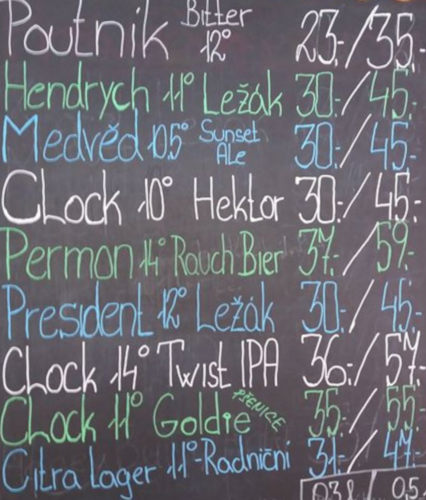 Poutník Bitter 12° 23.-/35.-
Hendrych 11° Ležák 30.-/45.-
Medvěd 10.5° Sunset Ale 30.-/45.-
CLock 10° Hektor 30.-/45.-
Permon 14° Rauch Bier 37.-/59.-
President 12° Ležák 30.-/45.-
CLock 14° Twist IPA 36.-/57.-
CLock 11° Goldie PŠENICE 35.-/55.-
Citra Lager 11°-Radniční 31.-/47.-
0,3 l / 0,5